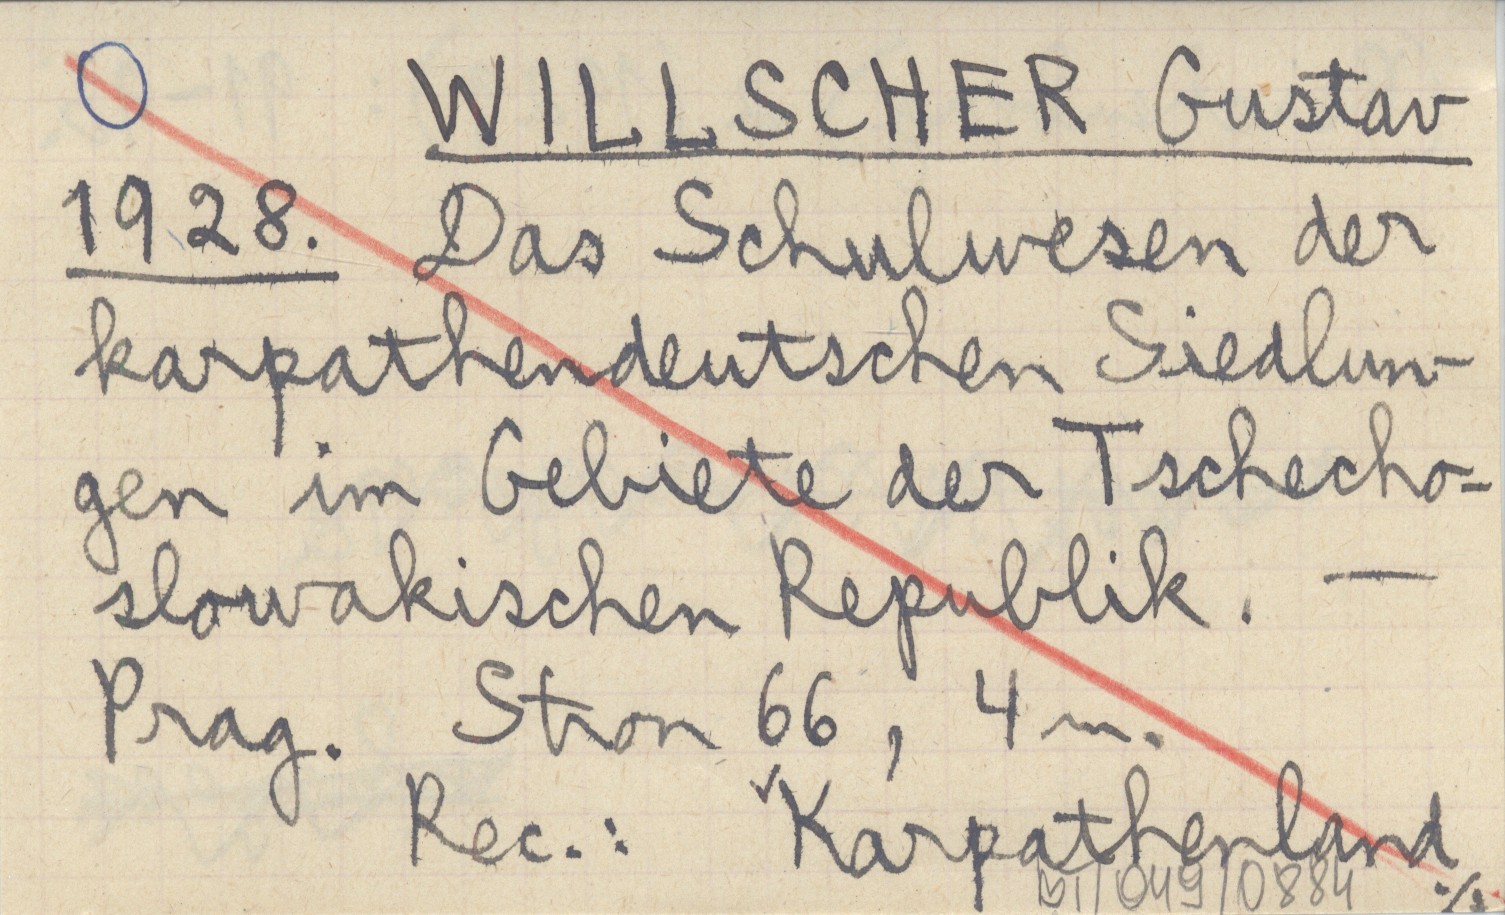 WILLSCHER Gustav
1928. Das Schulwesen der
karpathendeutschen Siedlun-
gen im Gebiete der Tschecho-
slowakischen Republik. —
Prag. Stron 66, 4 m.
Rec.: Karpathenland
BI/049/0884 ./.